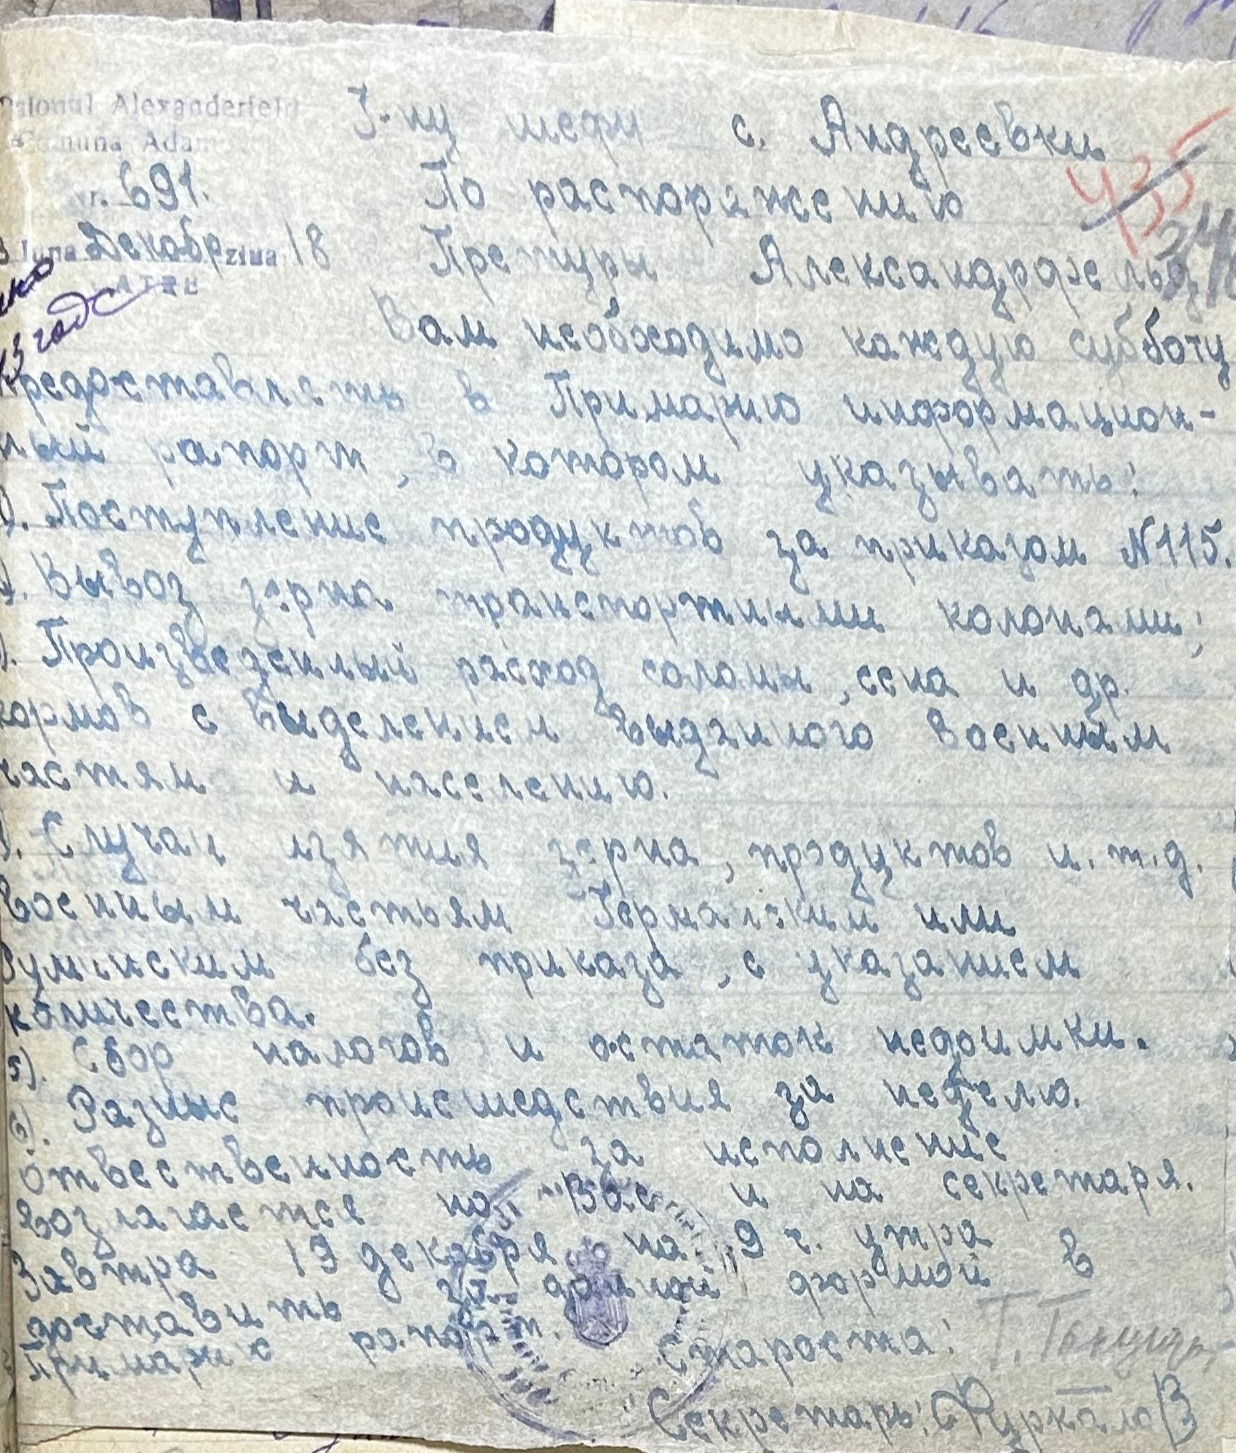 Raionul Alexanderfeld
Comuna Adam
Nr. 691.
Luna Декабр ziua 18
Г-ну шефу с. Андреевки
По распоряжению
Претуры Александрфельд
435
Вам необходимо каждую субботу
представлять в Примарию информацион-
ный рапорт, в котором указывать:
Поступление продуктов за приказом N115.
Вывоз зерна транспортными колонами;
Произведенный расход соломы, сена и др.
кормов с выделением выданного военным
частям и населению.
Случаи изятия зерна, продуктов и.т.д.
военным частьям Германским или
Румынским без приказа, с указанием
количества.
5). Сбор налогов и остаток недоимки.
6). Разные происшедствия за неделю.
Отвественность за исполнение
возлагается на Вас и на секретаря.
Завтра 19 декабря на 9 ч. утра
доставить за даной формой в
Примарию рапорт.
Староста:
Секретарь: Фуркало